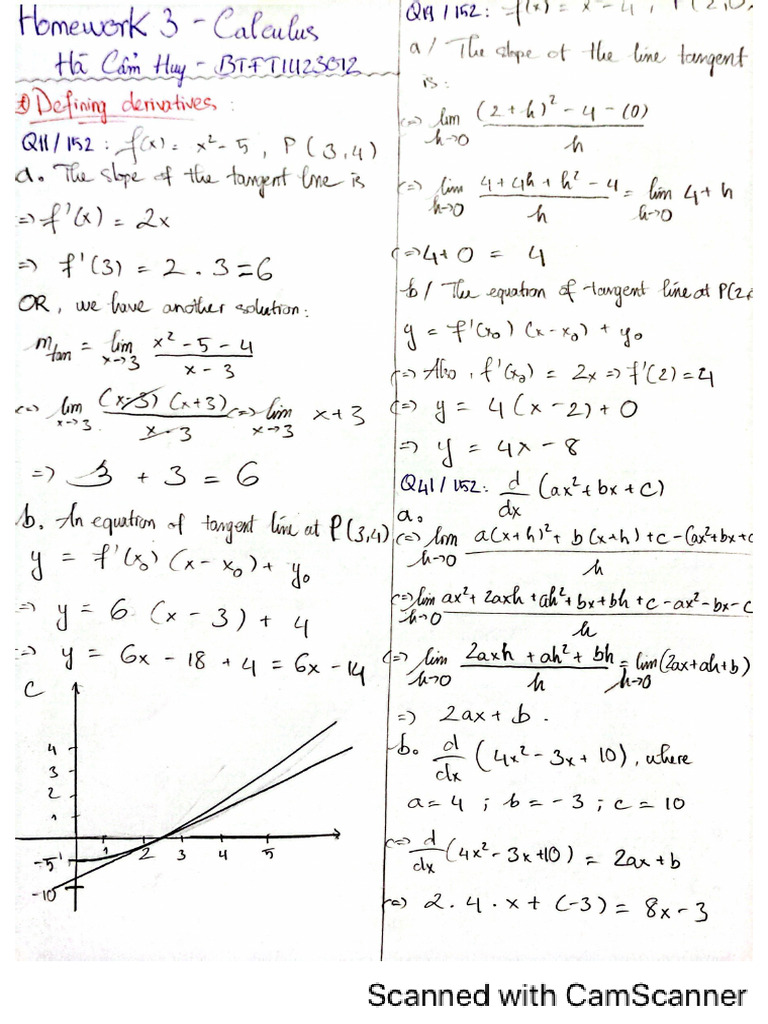 Homework 3 - Calculus
Hà Cẩm Huy - BTFTIU23012
*) Defining derivatives:
Q11/152: f(x) = x² - 5, P(3,4)
a. The slope of the tangent line is
=> f'(x) = 2x
=> f'(3) = 2 . 3 = 6
OR, we have another solution:
m_tan = lim x→3 (x² - 5 - 4)/(x - 3)
<=> lim x→3 (x-3)(x+3)/(x-3) <=> lim x→3 x + 3
=> 3 + 3 = 6
b. An equation of tangent line at P(3,4)
y = f'(x₀)(x - x₀) + y₀
=> y = 6 (x - 3) + 4
=> y = 6x - 18 + 4 = 6x - 14
c
4
3
2
1
1 2 3 4 5
-5
-10
Q19/152: f(x) = x² - 4, P(2,0
a/ The slope of the line tangent
is:
<=> lim h→0 ((2+h)² - 4 - (0))/h
<=> lim h→0 (4 + 4h + h² - 4)/h = lim h→0 4 + h
<=> 4 + 0 = 4
b/ The equation of tangent line at P(2,
y = f'(x₀)(x - x₀) + y₀
<=> Also, f'(x₀) = 2x => f'(2) = 4
<=> y = 4(x - 2) + 0
=> y = 4x - 8
Q41/152: d/dx (ax² + bx + c)
a.
<=> lim h→0 (a(x+h)² + b(x+h) + c - (ax² + bx + c)/h
<=> lim h→0 (ax² + 2axh + ah² + bx + bh + c - ax² - bx - c)/h
<=> lim h→0 (2axh + ah² + bh)/h = lim h→0 (2ax + ah + b)
=> 2ax + b.
b. d/dx (4x² - 3x + 10), where
a = 4 ; b = -3 ; c = 10
<=> d/dx (4x² - 3x + 10) = 2ax + b
<=> 2 . 4 . x + (-3) = 8x - 3
Scanned with CamScanner